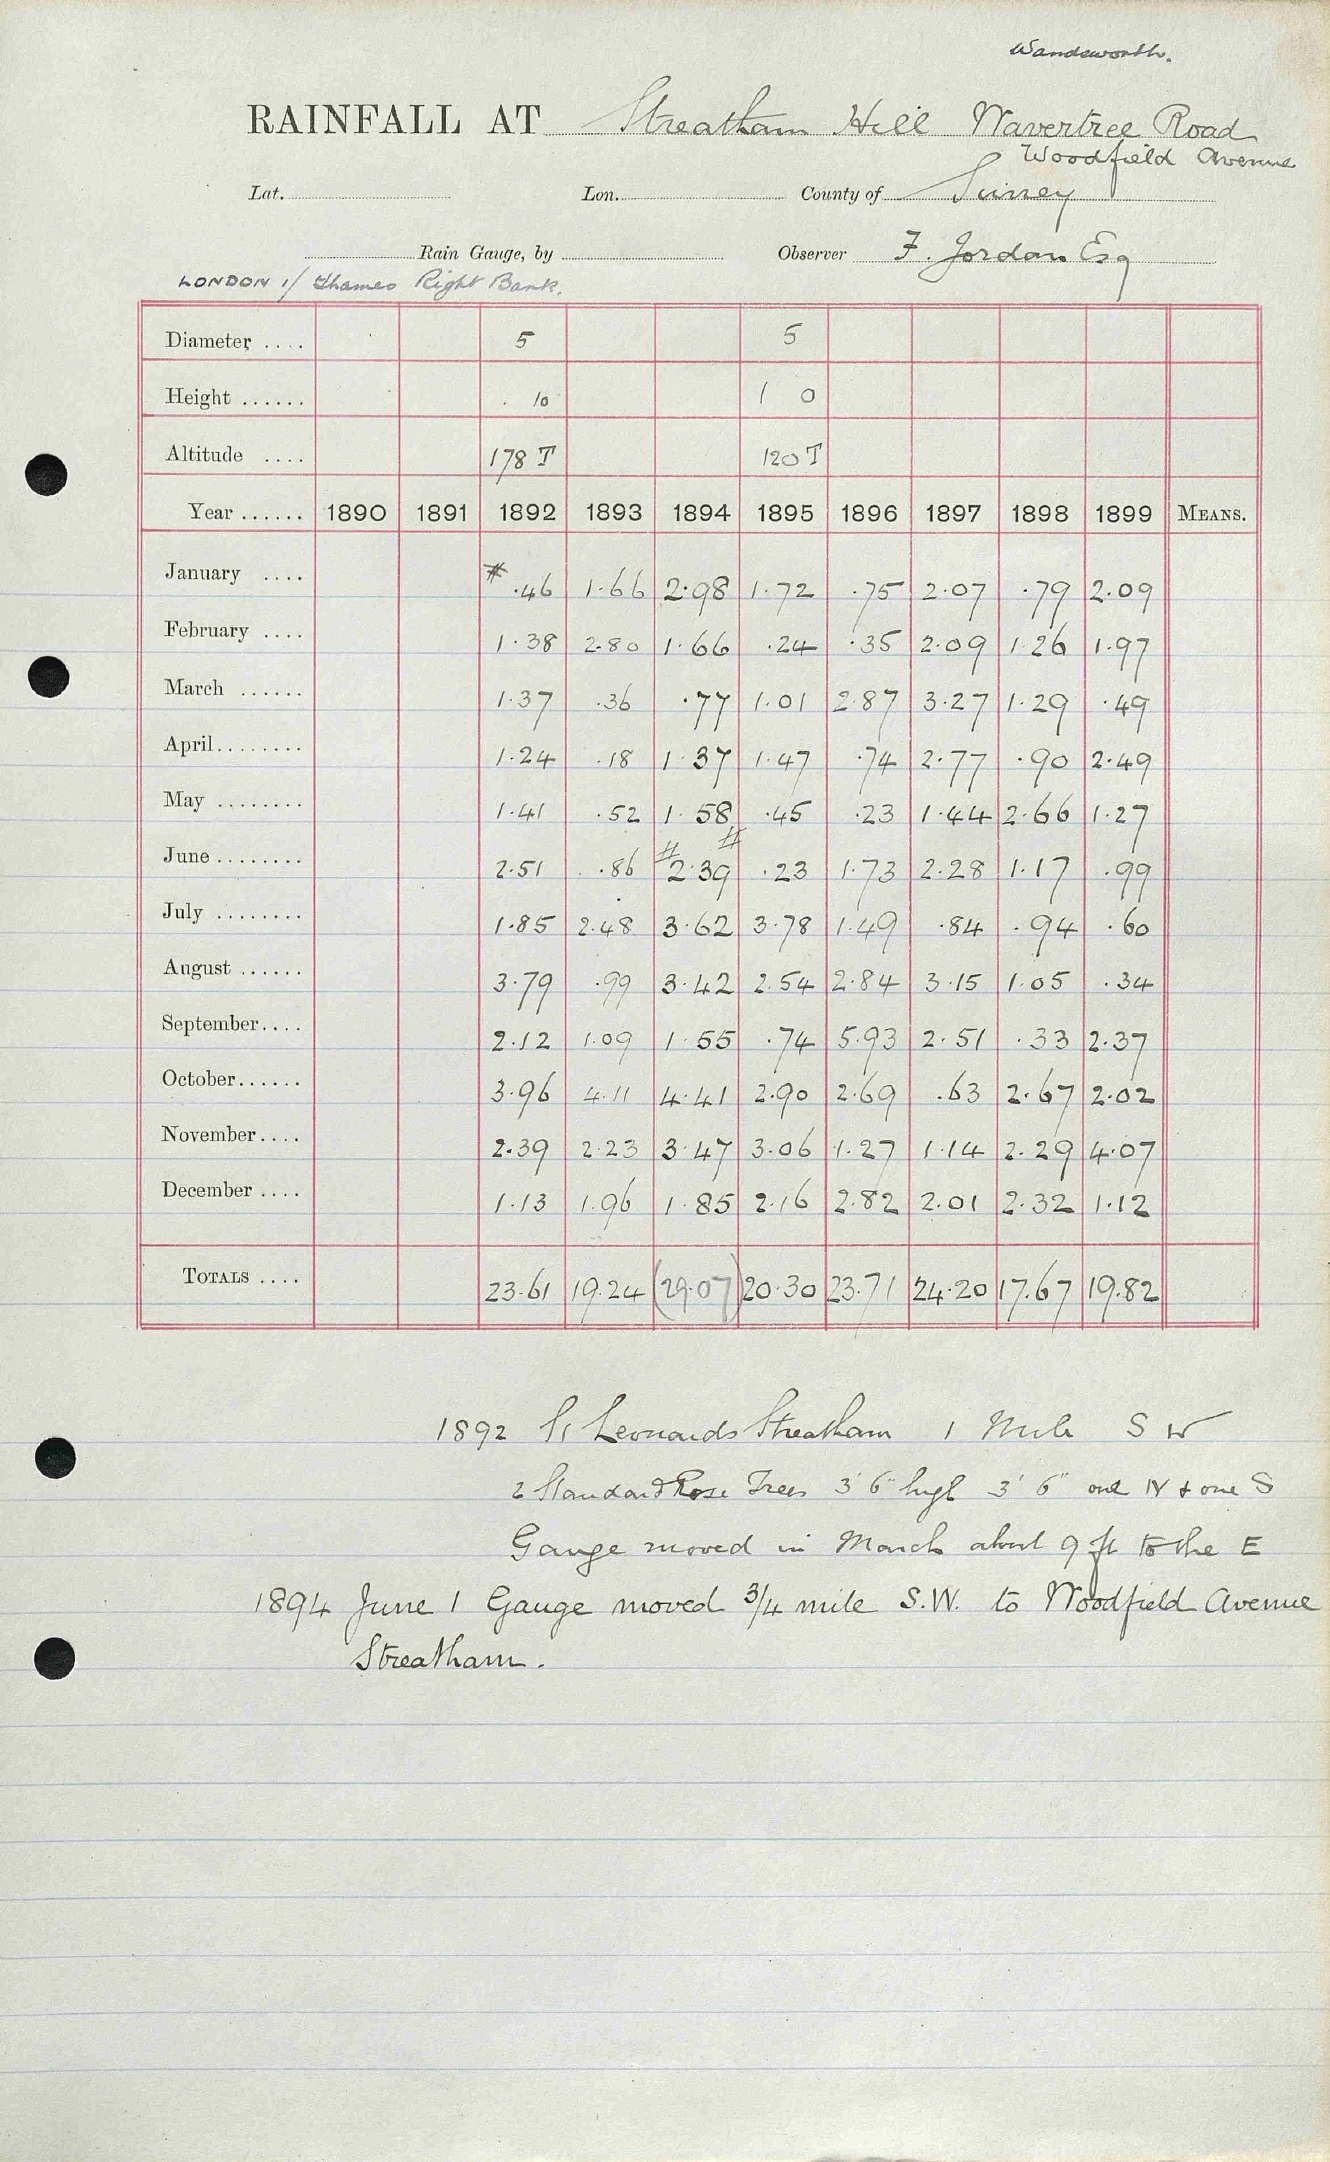 Wandsworth.
RAINFALL AT Streatham Hill Wavertree Road
Woodfield Avenue
Lat. Lon. County of Surrey
Rain Gauge, by Observer F. Jordan Esq
LONDON 1/ Thames Right Bank.
Diameter .... 5 5
Height ...... 10 1 0
Altitude .... 178 T 120 T
Year ...... 1890 1891 1892 1893 1894 1895 1896 1897 1898 1899 MEANS.
January .... # .46 1.66 2.98 1.72 .75 2.07 .79 2.09
February .... 1.38 2.80 1.66 .24 .35 2.09 1.26 1.97
March ...... 1.37 .36 .77 1.01 2.87 3.27 1.29 .49
April........ 1.24 .18 1.37 1.47 .74 2.77 .90 2.49
May ........ 1.41 .52 1.58 .45 .23 1.44 2.66 1.27
June ........ 2.51 .86 # 2.39 # .23 1.73 2.28 1.17 .99
July ........ 1.85 2.48 3.62 3.78 1.49 .84 .94 .60
August ...... 3.79 .99 3.42 2.54 2.84 3.15 1.05 .34
September.... 2.12 1.09 1.55 .74 5.93 2.51 .33 2.37
October...... 3.96 4.11 4.41 2.90 2.69 .63 2.67 2.02
November.... 2.39 2.23 3.47 3.06 1.27 1.14 2.29 4.07
December .... 1.13 1.96 1.85 2.16 2.82 2.01 2.32 1.12
TOTALS .... 23.61 19.24 (29.07) 20.30 23.71 24.20 17.67 19.82
1892 St Leonards Streatham 1 Mile S W
2 Standard Rose Trees 3' 6" high 3' 6" one N & one S
Gauge moved in March about 9 ft to the E
1894 June 1 Gauge moved 3/4 mile S.W. to Woodfield Avenue
Streatham.